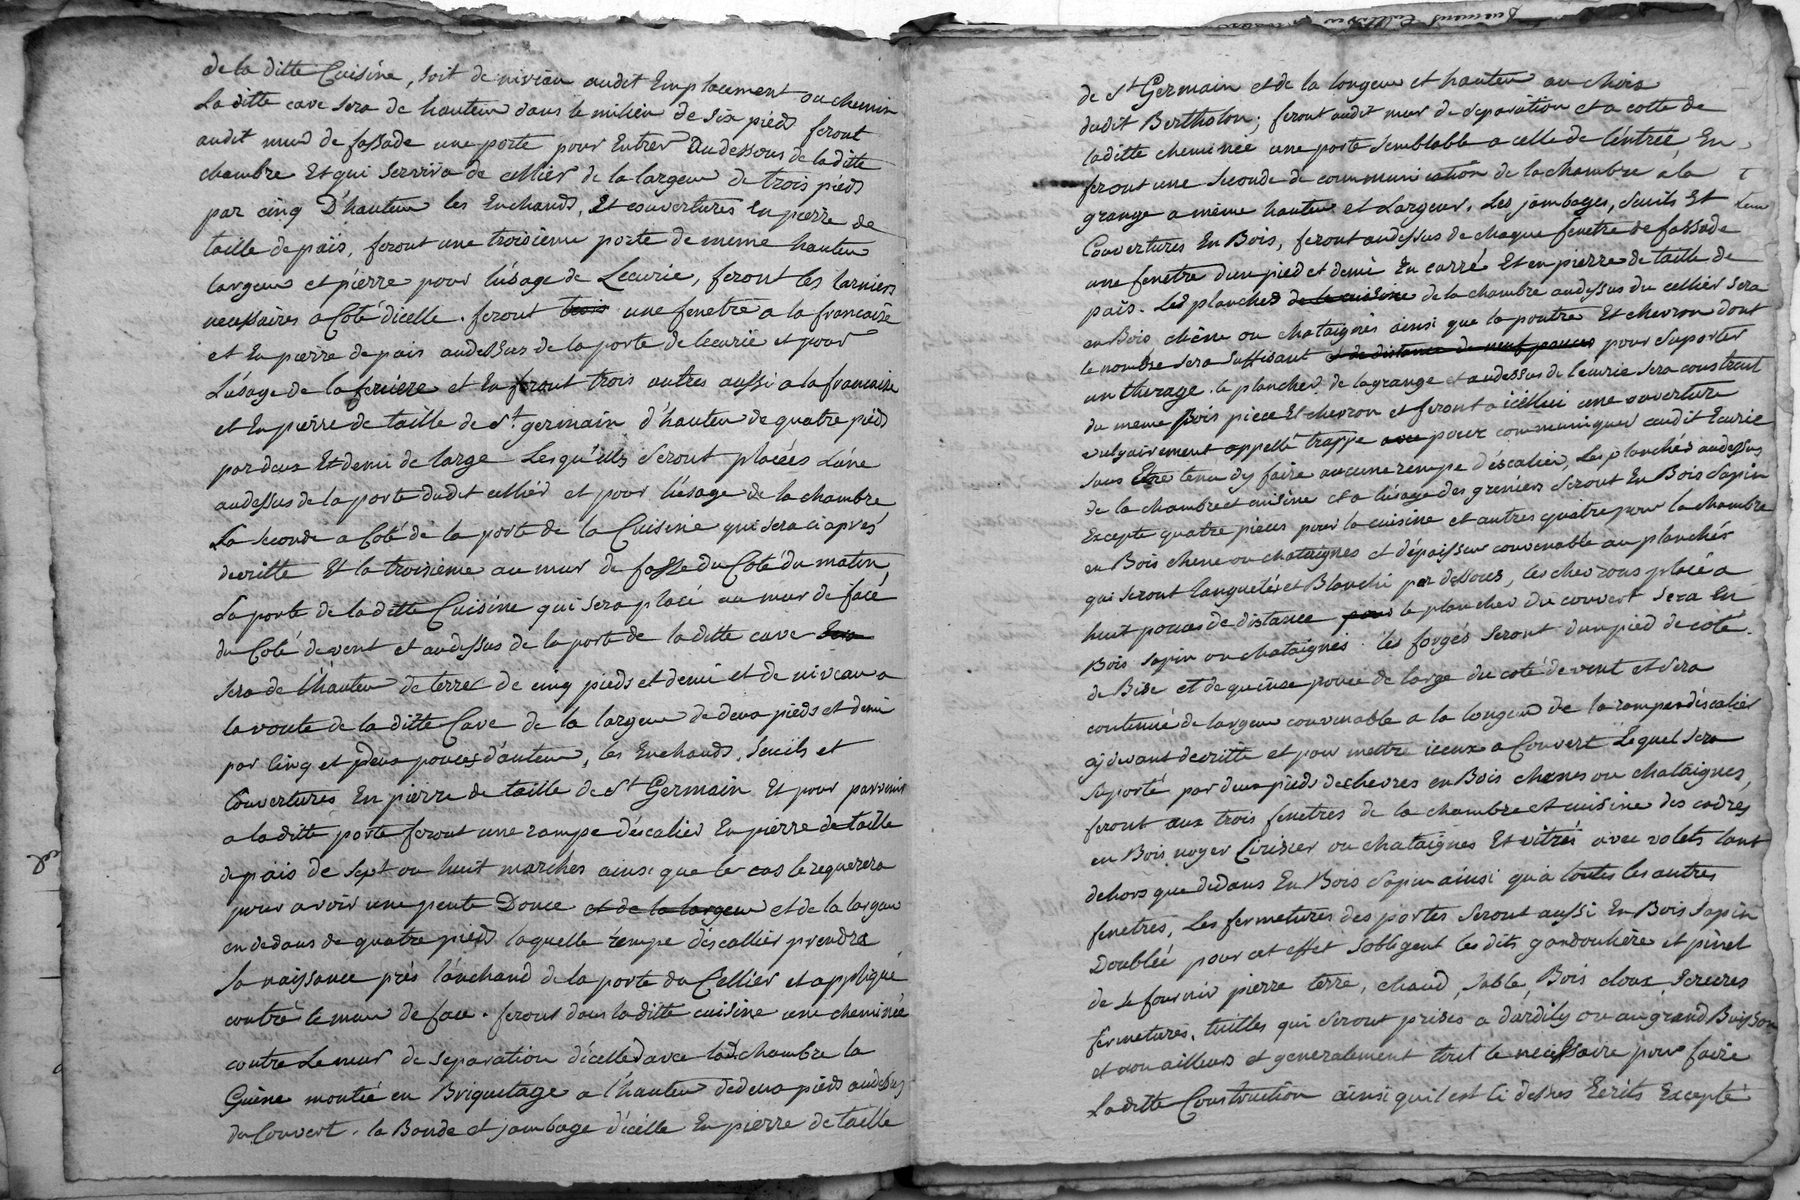 de la ditte Cuisine, soit de niveau audit Emplacement ou chemin
La ditte cave sera de hauteur dans le milieu de six pieds feront
audit mur de fassade une porte pour Entrer audessous de la ditte
chambre Et qui servira de cellier de la largeur de trois pieds
par cinq D'hauteur les Enchands, Et couvertures en pierre de
taille de païs, feront une troisieme porte de meme hauteur
largeur et pierre pour lusage de Lecurie, feront les larmiers
necessaires a Coté dicelle. feront trois une fenetre a la francaise
et En pierre de pais audessus de la porte de lecurie et pour
Lusage de la feniere et En feront trois autres aussi a la francaise
et En pierre de taille de St. germain d'hauteur de quatre pieds
par deux Et demi de large Lesqu'ells Seront placées Lúne
audessus de la porte dudit cellier et pour lúsage de la chambre
La seconde a Coté de la porte de la Cuisine qui sera ci aprés
decritte Et la troisieme au mur de fasse du Coté du matin,
La porte de la ditte Cuisine qui sera placé au mur de facé
du Coté de vent et audessus de la porte de la ditte cave Sera
sera de l'hauteur de terre de cinq pieds et demi et de niveau a
la voute de la ditte Cave de la largeur de deux pieds et demi
par Cinq et deux pouces d'auteur, les Enchands, Seuils et
Couvertures En pierre de taille de St Germain Et pour parvenir
a la ditte porte feront une rampe d'escalier En pierre de taille
de pais de Sept ou huit marches ainsi que le cas le requerera
pour avoir une pente Douce et de la largeur et de la largeur
en dedans de quatre pieds laquelle rempe d'escallier prendra
sa naissance prés l'anchand de la porte du Cellier et appliqué
contre le mur de face. feront dans la ditte cuisine une cheminée
contre Le mur de separation dicelle avec lad. chambre la
Guéne montée en Briquetage a l'hauteur de deux pieds audessus
du Couvert. la Bande et jambage d'icélle En pierre de taille
de St Germain et de la longeur et hauteur au choix
dudit Bertholon; feront audit mur de separation et a cotté de
la ditte cheminée une porte semblable a celle de l'éntrée En
feront une seconde de communication de la chambre a la
grange a même hauteur et Largeur, Les jambages, Seuils Et
Couvertures En Bois, feront audessus de chaque fenetre de fassade
une fenetre dun pied et demi En carré Et en pierre de taille de
païs. Les planchés de la cuisine de la chambre audessus du cellier sera
en Bois chéne ou chataignés ainsi que la poutre Et chevron dont
le nombre sera suffisant et de distance de neuf pouces pour suporter
un therage. le plancher de la grange et audessus de lécurie sera construit
du meme Bois piece Et chevron et feront a icellui une ouverture
vulgairement appellé trappe avec pour communiquer audit Ecurie
sans Etre tenu dy faire aucune rempe d'éscalier, Les planchés audessus
de la chambre et cuisine et a lúsage des greniers seront En Bois Sapin
Excepté quatre pieces pour la cuisine et autres quatre pour la chambre
en Bois chene ou chataignes et d'épaisseur convenable au planchér
qui seront languetés et Blanchi par dessous, les chevrons placé a
huit pouces de distance pour le plancher du couvert sera En
Bois Sapin ou chataignés. les forgés seront dun pied de coté
de Bise et de quinse pouce de large du coté de vent et sera
continué de largeur convenable a la longeur de la rampe descalier
ci devant decritte et pour mettre iceux a Couvert Lequel sera
suporté par deux pieds de chevres en Bois chenes ou chataignes,
feront aux trois fenetres de la chambre et cuisine des cadres
en Bois noyer Cirisier ou chataignes Et vitrés avec volets tant
dehors que dedans En Bois Sapin ainsi qu'á toutes les autres
fenetres, Les fermetures des portes seront aussi En Bois Sapin
Doublée pour cet effet soblegent les dits gandouliére et pinel
de se fournir pierre terre, chaud, sable, Bois cloux, serures
fermetures, tuilles qui seront prises a dardily ou au grand Buisson
et non ailleurs et generalement tout le necessaire pour faire
La ditte Construction ainsi quil est Ci dessus Ecrits Excepté